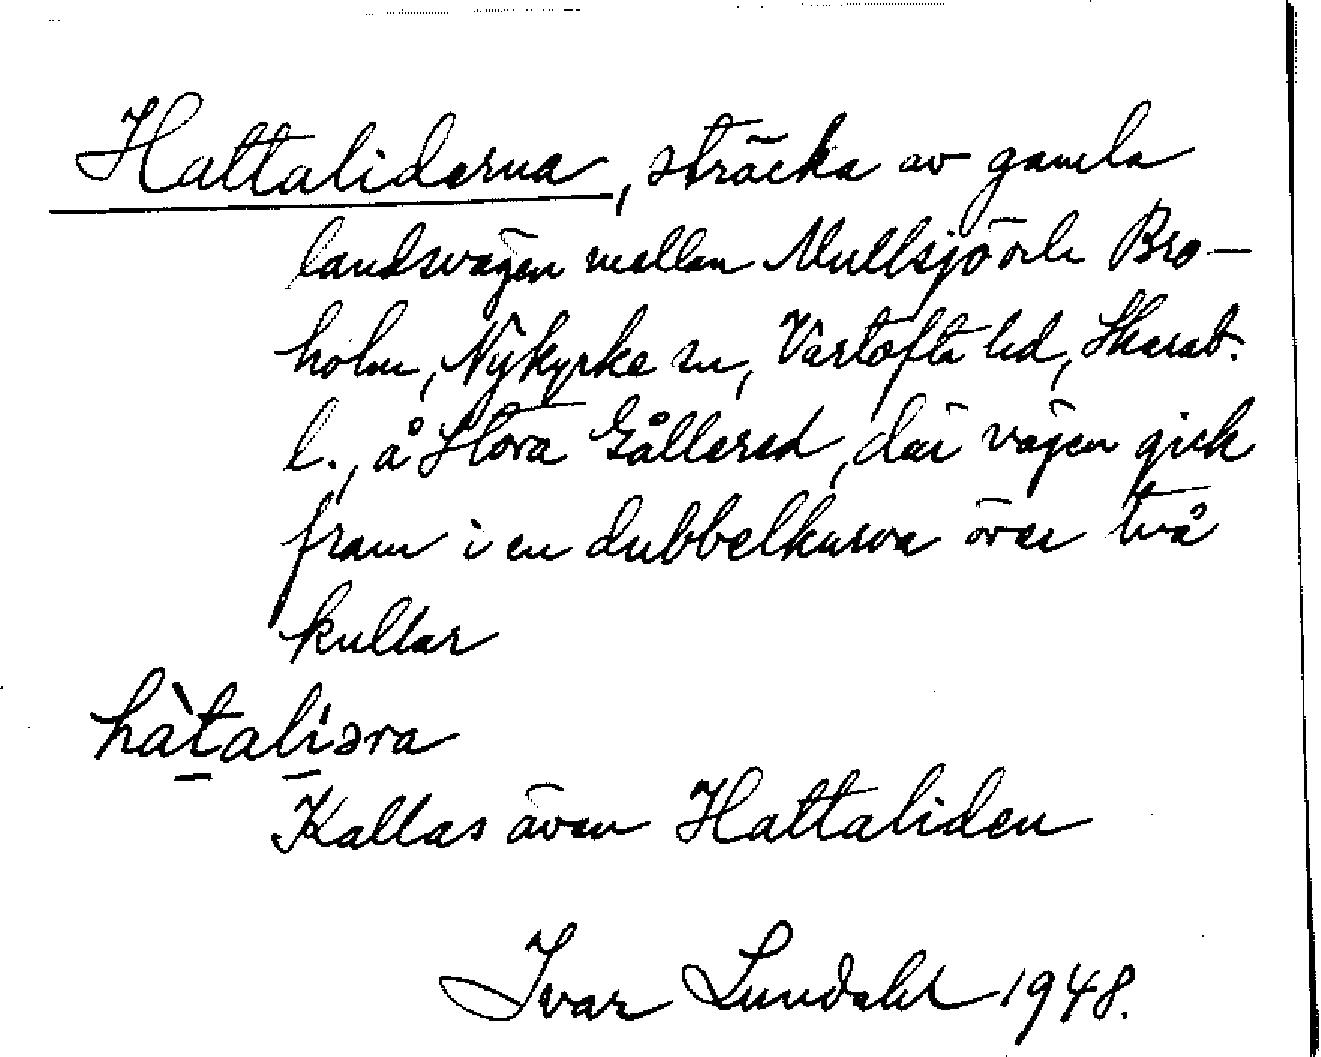 Hattaliderna, sträcka av gamla
landsvägen mellan Mullsjö och Bro-
holm, Nykyrke sn, Vartofta hd, Skarab.
l., å Stora Gållered, där vägen gick
fram i en dubbelkurva över två
kullar
hàtalìəra
Kallas även Hattaliden
Ivar Lundahl 1948.